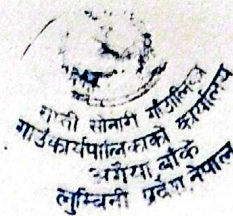 राप्ती सोनारी गाउँपालिका
गाउँकार्यपालिकाको कार्यालय
अगैया बाँके
लुम्बिनी प्रदेश नेपाल